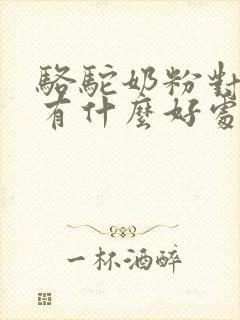 駱駝奶粉對
有什麼好處
一杯酒醉